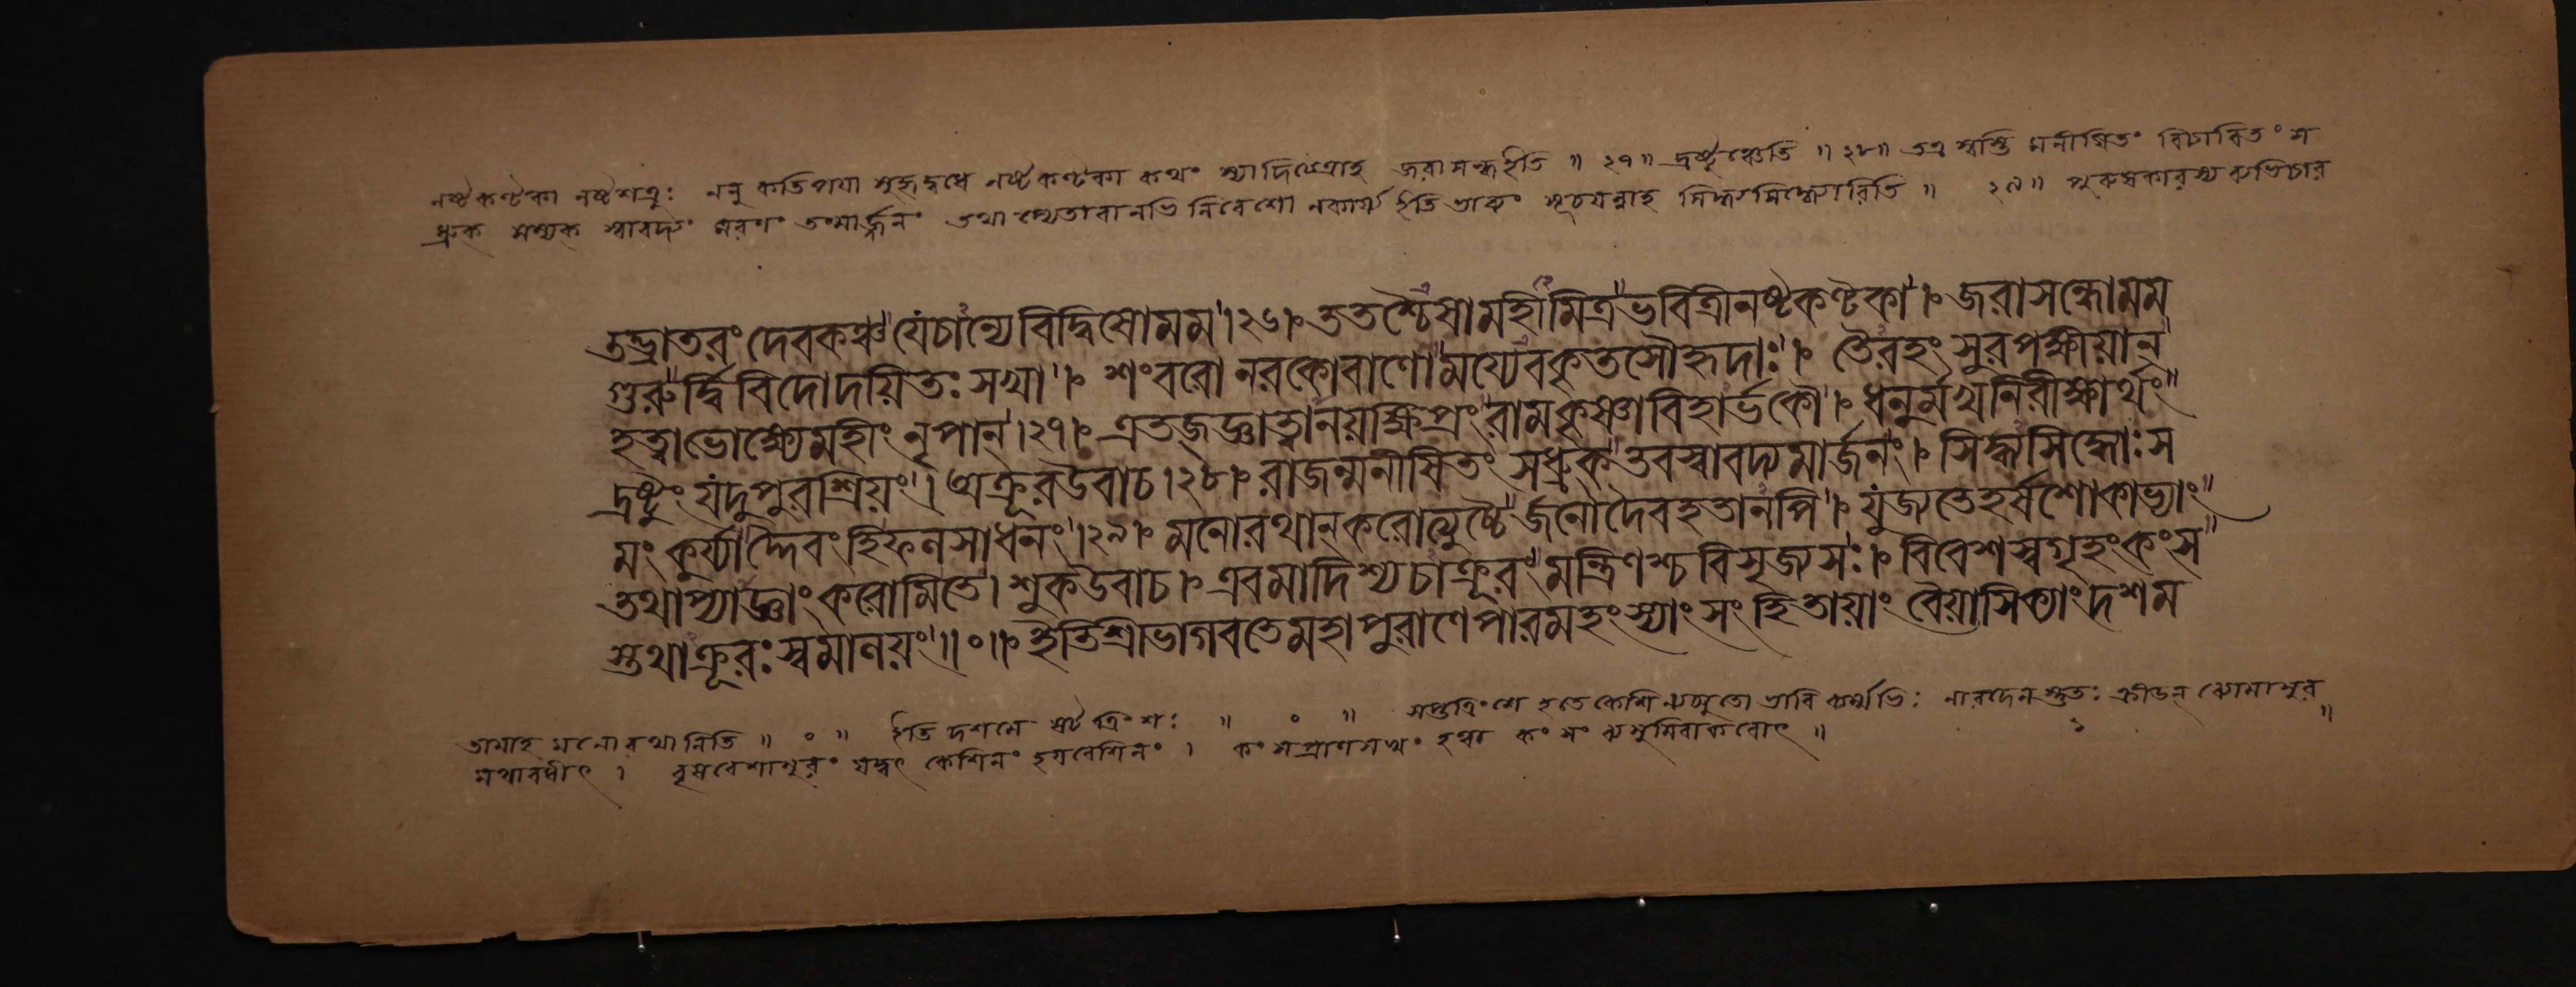 নষ্টকণ্টকা নষ্টশত্রুঃ ননু কতিপয়া সুহৃদ্বধে নষ্টকণ্টকা কথং স্যাদিত্যত্রাহ জরাসন্ধইতি ॥ ২৭॥ দ্রষ্টুঞ্চেতি ॥ ২৮॥ তব স্বস্তি মনীষিতং বিচারিতং স
ধ্রুক সম্যক স্বাবদ্যং মরণং তংমার্জ্জনং তথাপ্যেতাবানভিনিবেশো নকার্য্য ইতি ভাবং সূচয়ন্নাহ সিদ্ধ্যসিদ্ধ্যোরিতি ॥ ২৯॥ পুরুষকারস্য ব্যভিচার
তদ্ভ্রাতরং দেবকঞ্চ যেচান্যে বিদ্বিষোমম।২৬। ততশ্চৈষামহীমিত্র ভবিত্রীনষ্টকণ্টকা। জরাসন্ধোমম
গুরুর্দ্বিবিদোদয়িতঃ সখা। শংবরো নরকোবাণোময্যেবকৃতসৌহৃদাঃ। তৈরহং সুরপক্ষীয়ান্
হত্বাভোক্ষ্যেমহীং নৃপান্।২৭। এতজ্জ্ঞাত্বানয়ক্ষিপ্রং রামকৃষ্ণাবিহার্ভকৌ। ধনুর্মখনিরীক্ষার্থং
দ্রষ্টুং যদুপুরশ্রিয়ং। অক্রূরউবাচ।২৮। রাজন্মনীষিতং সধ্রুক তবস্বাবদ্যমার্জনং। সিদ্ধ্যসিদ্ধ্যোঃস
মং কুর্য্যাদ্দৈবংহিফলসাধনং।২৯। মনোরথান্করোত্যুচ্চৈর্জনোদৈবহতানপি। যুজ্যতেহর্ষশোকাভ্যাং
তথাপ্যাজ্ঞাংকরোমিতে। শুকউবাচ। এবমাদিশ্যচাক্রূরং মন্ত্রিণশ্চবিসৃজ্যসঃ। বিবেশস্বগৃহংকংস
স্তথাক্রূরঃস্বমালয়ং॥০॥ ইতিশ্রীভাগবতেমহাপুরাণেপারমহংস্যাং সংহিতায়াং বৈয়াসিক্যাংদশম
তামাহ মনোরথানিতি ॥ ০ ॥ ইতি দশমে ষট ত্রিংশঃ ॥ ০ ॥ সপ্তত্রিংশে হতে কেশিন্যচ্যুতো ভাবি কর্ম্মভিঃ নারদেন স্তুতঃ ক্রীডন্ ব্যোমাসুর
মথাবধীৎ । বৃষবেশাসুরং যদ্বৎ কেশিনং হয়বেশিনং । কংসপ্রাণসখং হত্বা কংসং ॥